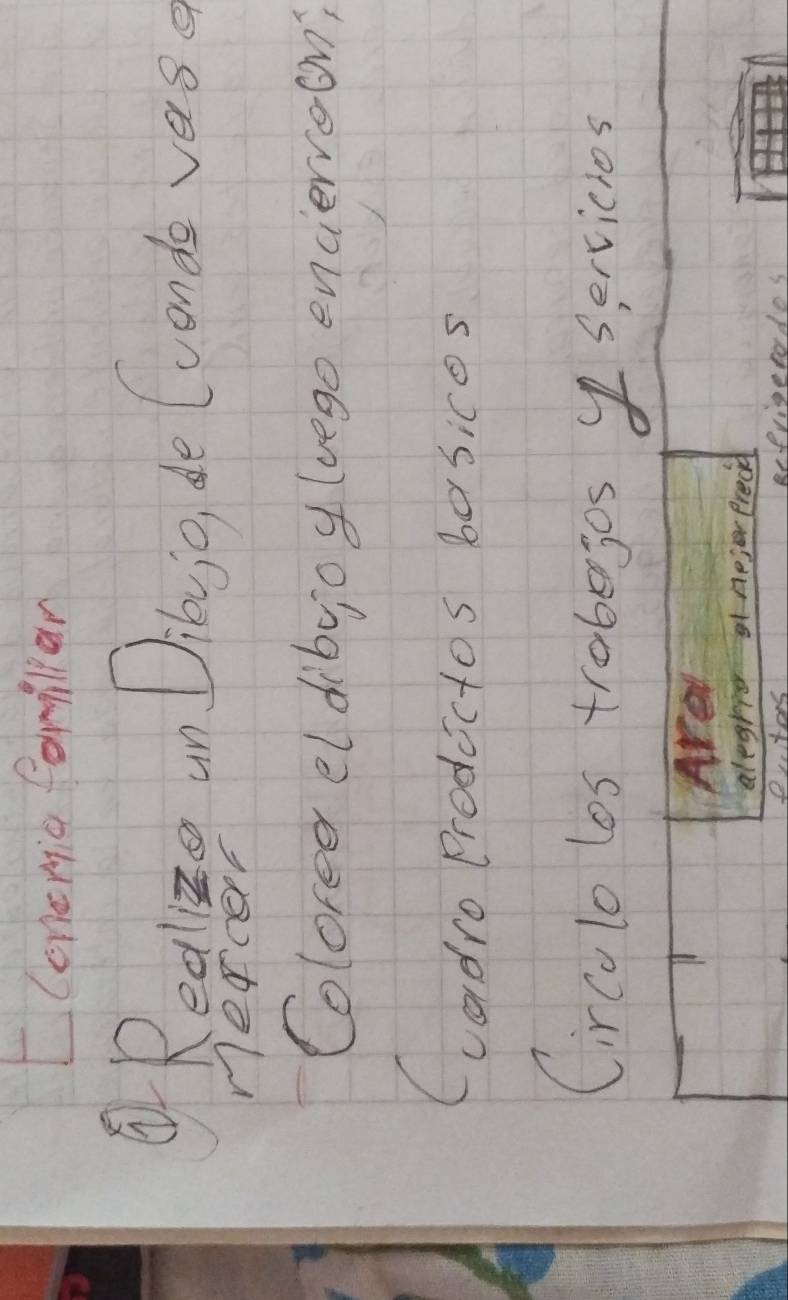 Economia familiar
1 Realiza un Dibujo, de Cuando vas a
mercar
- Colorea el dibujo y luego encierra en;
Cuadro Productos basicos
Circulo los trabajos y servicios
Ara
alegria al mejor precio
frutas